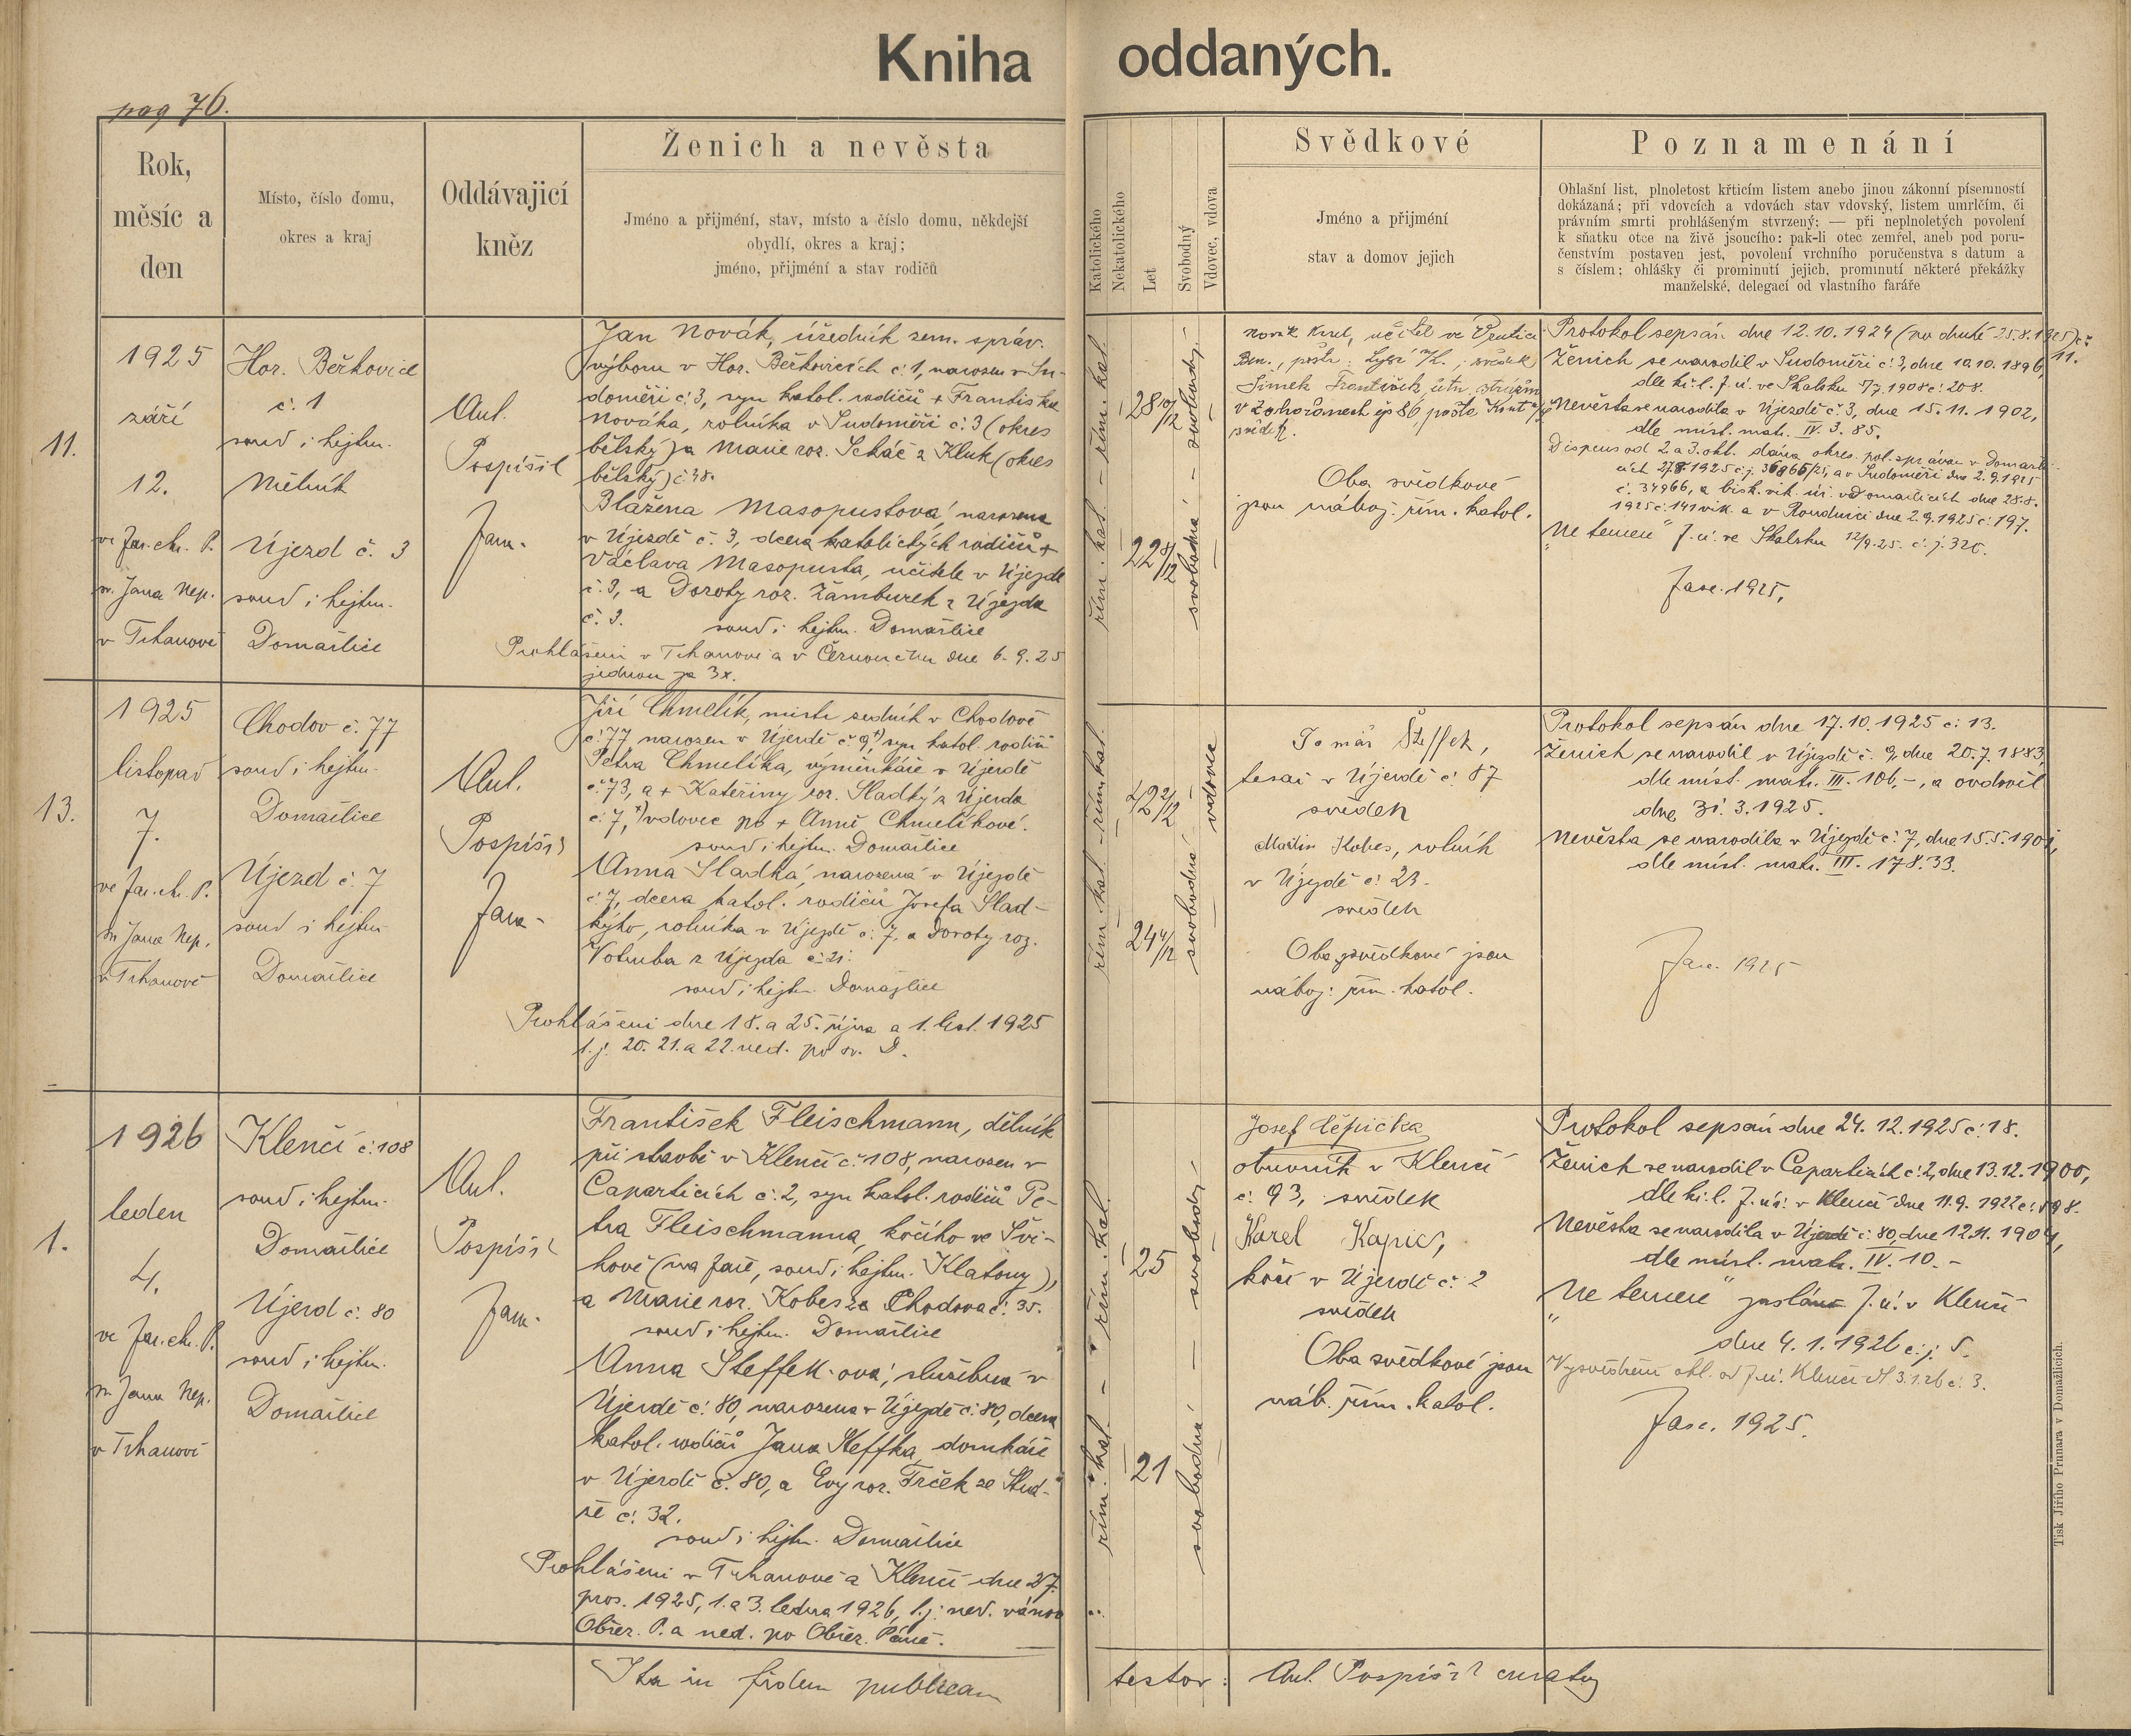 Kniha oddaných.
pag 76.
Rok,
měsíc a
den
Místo, číslo domu,
okres a kraj
Oddávajicí
kněz
Ženich a nevěsta
Jméno a přijmení, stav, místo a číslo domu, někdejší
obydlí, okres a kraj;
jméno, přijmení a stav rodičů
Katolického
Nekatolického
Let
Svobodný
Vdovec, vdova
Svědkové
Jméno a přijmení
stav a domov jejich
Poznamenání
Ohlašní list, plnoletost křticím listem anebo jinou zákonní písemností
dokázaná; při vdovcích a vdovách stav vdovský, listem umrlčím, či
právním smrti prohlášeným stvrzený; — při neplnoletých povolení
k sňatku otce na živě jsoucího: pak-li otec zemřel, aneb pod poru-
čenstvím postaven jest, povolení vrchního poručenstva s datum a
s číslem; ohlášky či prominutí jejich, prominutí některé překážky
manželské, delegací od vlastního faráře
11.
1925
září
12.
ve far. chr. P.
sv. Jana Nep.
v Trhanově
Hor. Beřkovice
č. 1
soud i hejtm.
Mělník
Újezd č. 3
soud i hejtm.
Domažlice
Ant.
Pospíšil
farář
Jan Novák, úředník zem. správ.
výboru v Hor. Beřkovicích č. 1, narozen v Su-
doměři č. 3, syn katol. rodičů + Františka
Nováka, rolníka v Sudoměři č. 3 (okres
bělský) a Marie roz. z Kluk (okres
bělský) č. 48.
Blažena Masopustová, narozena
v Újezdě č. 3, dcera katolických rodičů +
Václava Masopusta, učitele v Újezdě
č. 3, a Doroty roz. Žamburek z Újezda
č. 3. soud i hejtm. Domažlice
Prohlášeni v Trhanově a v dne 6. 9. 25
jednou za 3x.
řím. kat. – řím. kat.
28 10/12
22 /12
svobodná – svobodný –
Novák Karel, učitel ve
svědek
Šimek František,
svědek.
Oba svědkové
jsou nábož. řím. katol.
Protokol sepsán dne 12.10.1924 (po druhé 25.8.1925) č.
11.
Ženich se narodil v Sudoměři č. 3, dne 10.10.1896,
dle kř. l. f. ú. ve Skalsku 7/7. 1908 č. 208.
Nevěsta se narodila v Újezdě č. 3, dne 15. 11. 1902,
dle míst. matr. IV. 3. 85.
Dispens od 2. a 3. ohl. dána okres. pol. správou v Domažli-
cích 27.8.1925 č.j. 36865/25, a v Sudoměři dne 2.9.1925
č. 34966, a bisk. vik. úř. v Domažlicích dne 28.8.
1925 č. 141 vik. a v Roudnici dne 2.9.1925 č. 197.
„Ne temere“ f. ú. ve Skalsku 12/9. 25. č. j. 320.
fasc. 1925,
13.
1925
listopad
7.
ve far. chr. P.
sv. Jana Nep.
v Trhanově
Chodov č. 77
soud i hejtm.
Domažlice
Újezd č. 7
soud i hejtm.
Domažlice
Ant.
Pospíšil
farář
Jiří Chmelík, mistr zedník v Chodově
č. 77 narozen v Újezdě č. 9 +), syn katol. rodičů
Petra Chmelíka, výměnkáře v Újezdě
č. 73, a + Kateřiny roz. Sladký z Újezda
č. 7, +) vdovec po + Anně Chmelíkové.
soud i hejtm. Domažlice
Anna Sladká, narozená v Újezdě
č. 7, dcera katol. rodičů Josefa Slad-
kýho, rolníka v Újezdě č. 7, a Doroty roz.
Votruba z Újezda č. 21.
soud i hejtm. Domažlice
Prohlášeni dne 18. a 25. října a 1. list. 1925
t. j. 20. 21. a 22. ned. po sv. D.
řím. kat. – řím. kat.
42 2/12
24 4/12
svobodná vdovec
Tomáš Šteffek,
tesař v Újezdě č. 87
svědek
Martin Kobes, rolník
v Újezdě č. 23.
svědek
Oba svědkové jsou
nábož. řím. katol.
Protokol sepsán dne 17. 10. 1925 č. 13.
Ženich se narodil v Újezdě č. 9, dne 20. 7. 1883,
dle míst. matr. III. 106, –, a ovdověl
dne 31. 3. 1925.
Nevěsta se narodila v Újezdě č. 7, dne 15. 5. 1901,
dle míst. matr. III. 178. 33.
fasc. 1925
1.
1926
leden
4.
ve far. chr. P.
sv. Jana Nep.
v Trhanově
Klenčí č. 108
soud i hejtm.
Domažlice
Újezd č. 80
soud i hejtm.
Domažlice
Ant.
Pospíšil
farář
František Fleischmann, dělník
při stavbě v Klenčí č. 108, narozen v
Caparticích č. 2, syn katol. rodičů Pe-
tra Fleischmanna, kočího ve Švi-
hově (na faře, soud i hejtm. Klatovy),
a Marie roz. Kobes ze Chodova č. 35.
soud i hejtm. Domažlice
Anna Steffek-ová, služebná v
Újezdě č. 80, narozena v Újezdě č. 80, dcera
katol. rodičů Jana Steffka, domkáře
v Újezdě č. 80, a Evy roz. Frček ze Stud-
ně č. 32.
soud i hejtm. Domažlice
Prohlášeni v Trhanově a Klenčí dne 27.
pros. 1925, 1. a 3. ledna 1926, t. j. ned. vánoc
Obřez. P. a ned. po Obřez. Páně.
řím. kat. – řím. kat.
25
21
svobodná – svobodný –
Josef Čepička
obuvník v Klenčí
č. 93, svědek
Karel Kapic,
kočí v Újezdě č. 2
svědek
Oba svědkové jsou
náb. řím. katol.
Protokol sepsán dne 24. 12. 1925 č. 18.
Ženich se narodil v Caparticích č. 2, dne 13. 12. 1900,
dle kř. l. f. ú. v Klenčí dne 11. 9. 1922 č. 598.
Nevěsta se narodila v Újezdě č. 80, dne 12. 11. 1904,
dle míst. matr. IV. 10. –
„Ne temere“ zasláno f. ú. v Klenčí
dne 4. 1. 1926 č. j. 5.
Vysvědčení ohl. od f. ú. Klenčí 3.1.26 č. 3.
fasc. 1925.
Ita in fidem publicam
testor: Ant. Pospíšil curatus
Tisk Jiřího Prunara v Domažlicích.